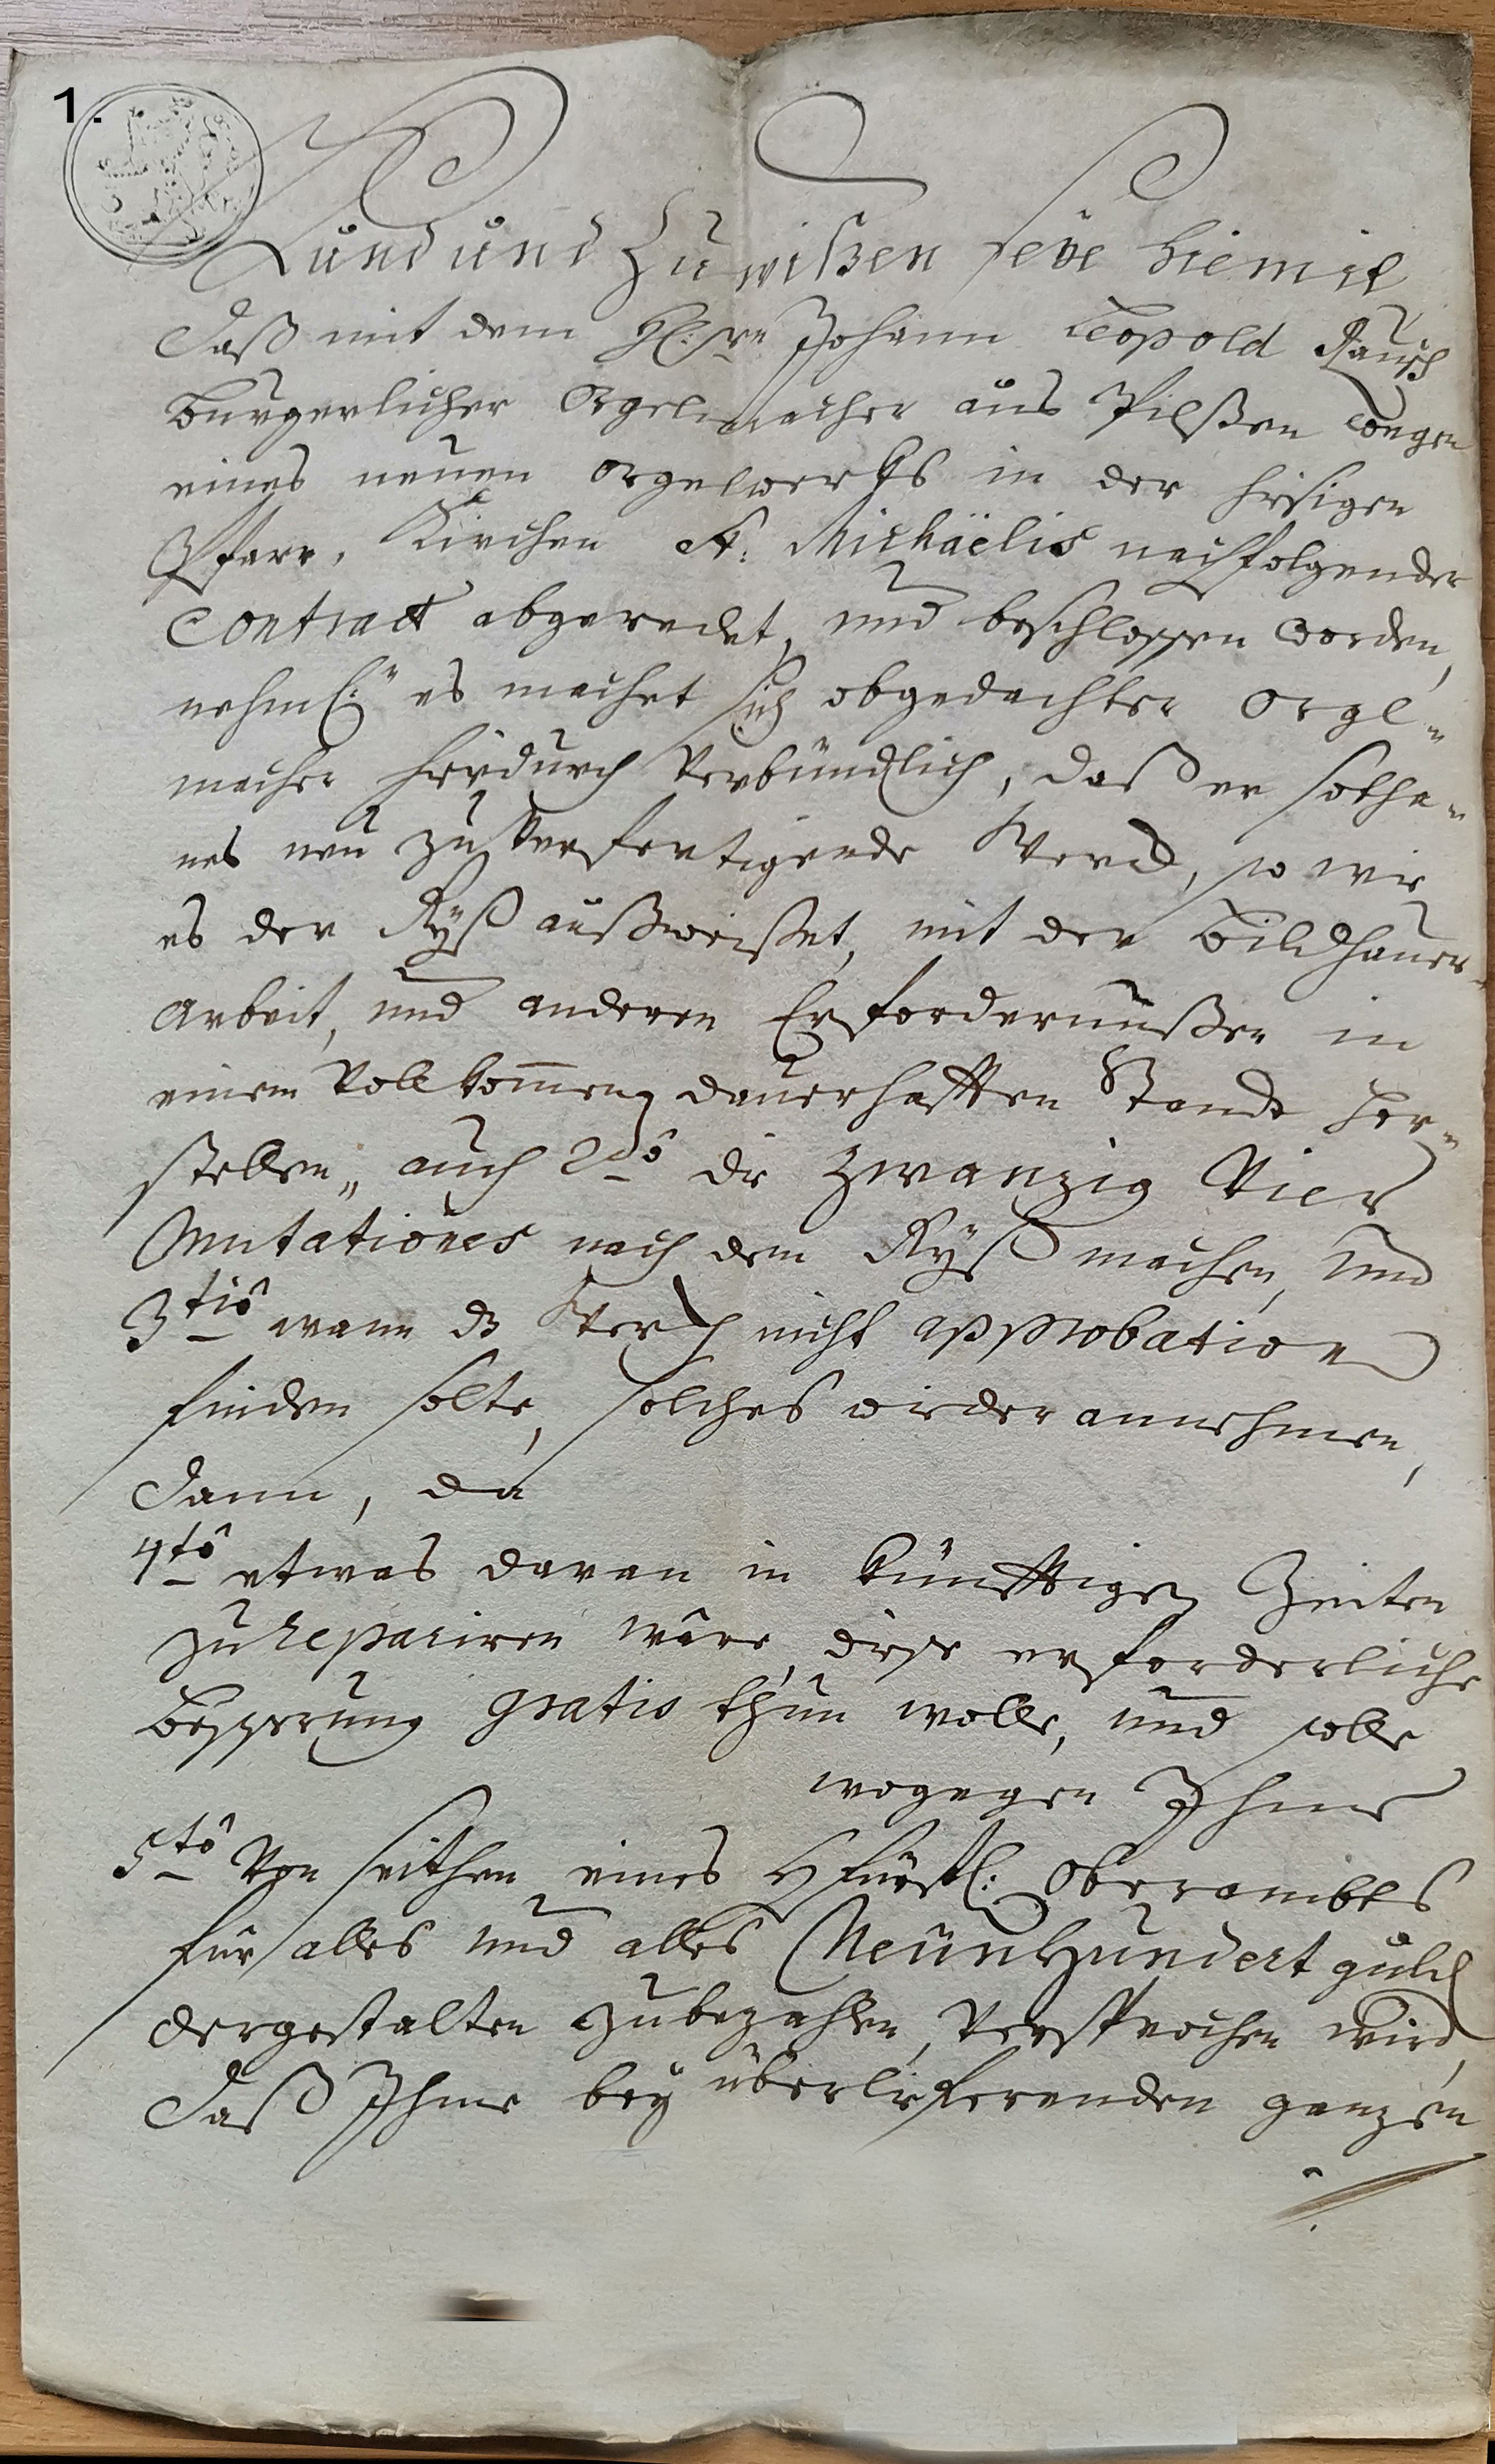 1.
Kund und Zu wißen seÿe hiemit
Daß mit dem H: Hrn Johann Leopold Rausch
Burgerlicher Orgelmacher aus Pilßen wegen
eines neuen orgelwerks in der hisigen
Pfarr, Kirchen St: Michaëlis nachfolgender
Contract abgeredet, und beschlossen worden,
nehml: es machet sich obgedachter Orgl-
macher hierdurch Verbündlich, daß er sotha-
nes neu zu Verfertigende Werck, so wie
es der Ryß außweißet, mit der Bildhauer
Arbeit, und anderen Erfordernüßen in
einem Vollkom̄en dauerhafften Stande her-
stellen, auch 2do die Zwanzig Vier
Mutationes nach dem Ryß machen, und
3tio wann dz Werck nicht approbation
finden solte, solches wider annehmen,
Dann, da
4to etwas daran in künfftigen Zeiten
zu repariren wäre, diese erforderliche
Besserung gratis thun wolle, und solle
wogegen Ihme
5to Von seithen eines Hfürstl: Oberambts
für alles und alles Neün Hundert guld
dergestalten zu bezahlen, Versprochen wird,
Daß Ihme bey überlieferenden ganzen